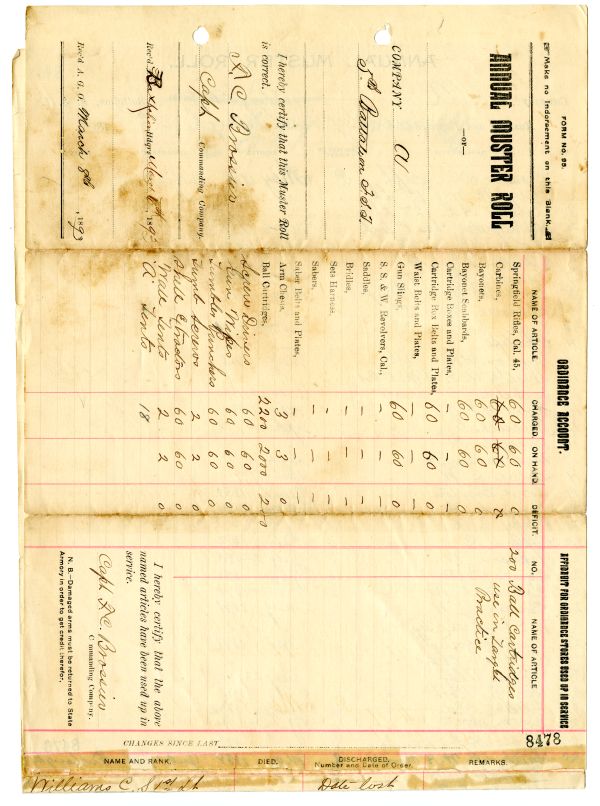 FORM No. 95.
Make no Indorsement on this Blank.
ANNUAL MUSTER ROLL
—OF—
COMPANY
Battalion
I hereby certify that this Muster Roll
is correct.
C. Brosius
Capt Commanding Company.
Rec'd 189
Rec'd A. G. O. March 8th, 1893
ORDNANCE ACCOUNT.
NAME OF ARTICLE. CHARGED. ON HAND. DEFICIT.
Springfield Rifles, Cal. 45, 60 60 0
Carbines,
Bayonets, 60 60 0
Bayonet Scabbards, 60 60 0
Cartridge Boxes and Plates, — — —
Cartridge Box Belts and Plates, 60 60 0
Waist Belts and Plates, — — —
Gun Slings, 60 60 0
S. & W. Revolvers, Cal., — — —
Saddles, — — —
Bridles, — — —
Sets Harness, — — —
Sabers, — — —
Saber Belts and Plates, — — —
Arm Chests, 3 3 0
Ball Cartridges, 2200 2000 200
Screw Drivers 60 60 0
Gun Wipes 60 60 0
Tumbler Punches 60 60 0
2 2 0
Shell Extractors 60 60 0
Wall Tents 2 2 0
A Tents 18
AFFIDAVIT FOR ORDNANCE STORES USED UP IN SERVICE
NO. NAME OF ARTICLE
200 Ball Cartridges
use in Target
Practice
I hereby certify that the above
named articles have been used up in
service.
Capt C. Brosius
Commanding Company.
N. B.—Damaged arms must be returned to State
Armory in order to get credit therefor.
8478
CHANGES SINCE LAST
NAME AND RANK. DIED. DISCHARGED, Number and Date of Order. REMARKS.
Williams C. S 1st Lt Date lost